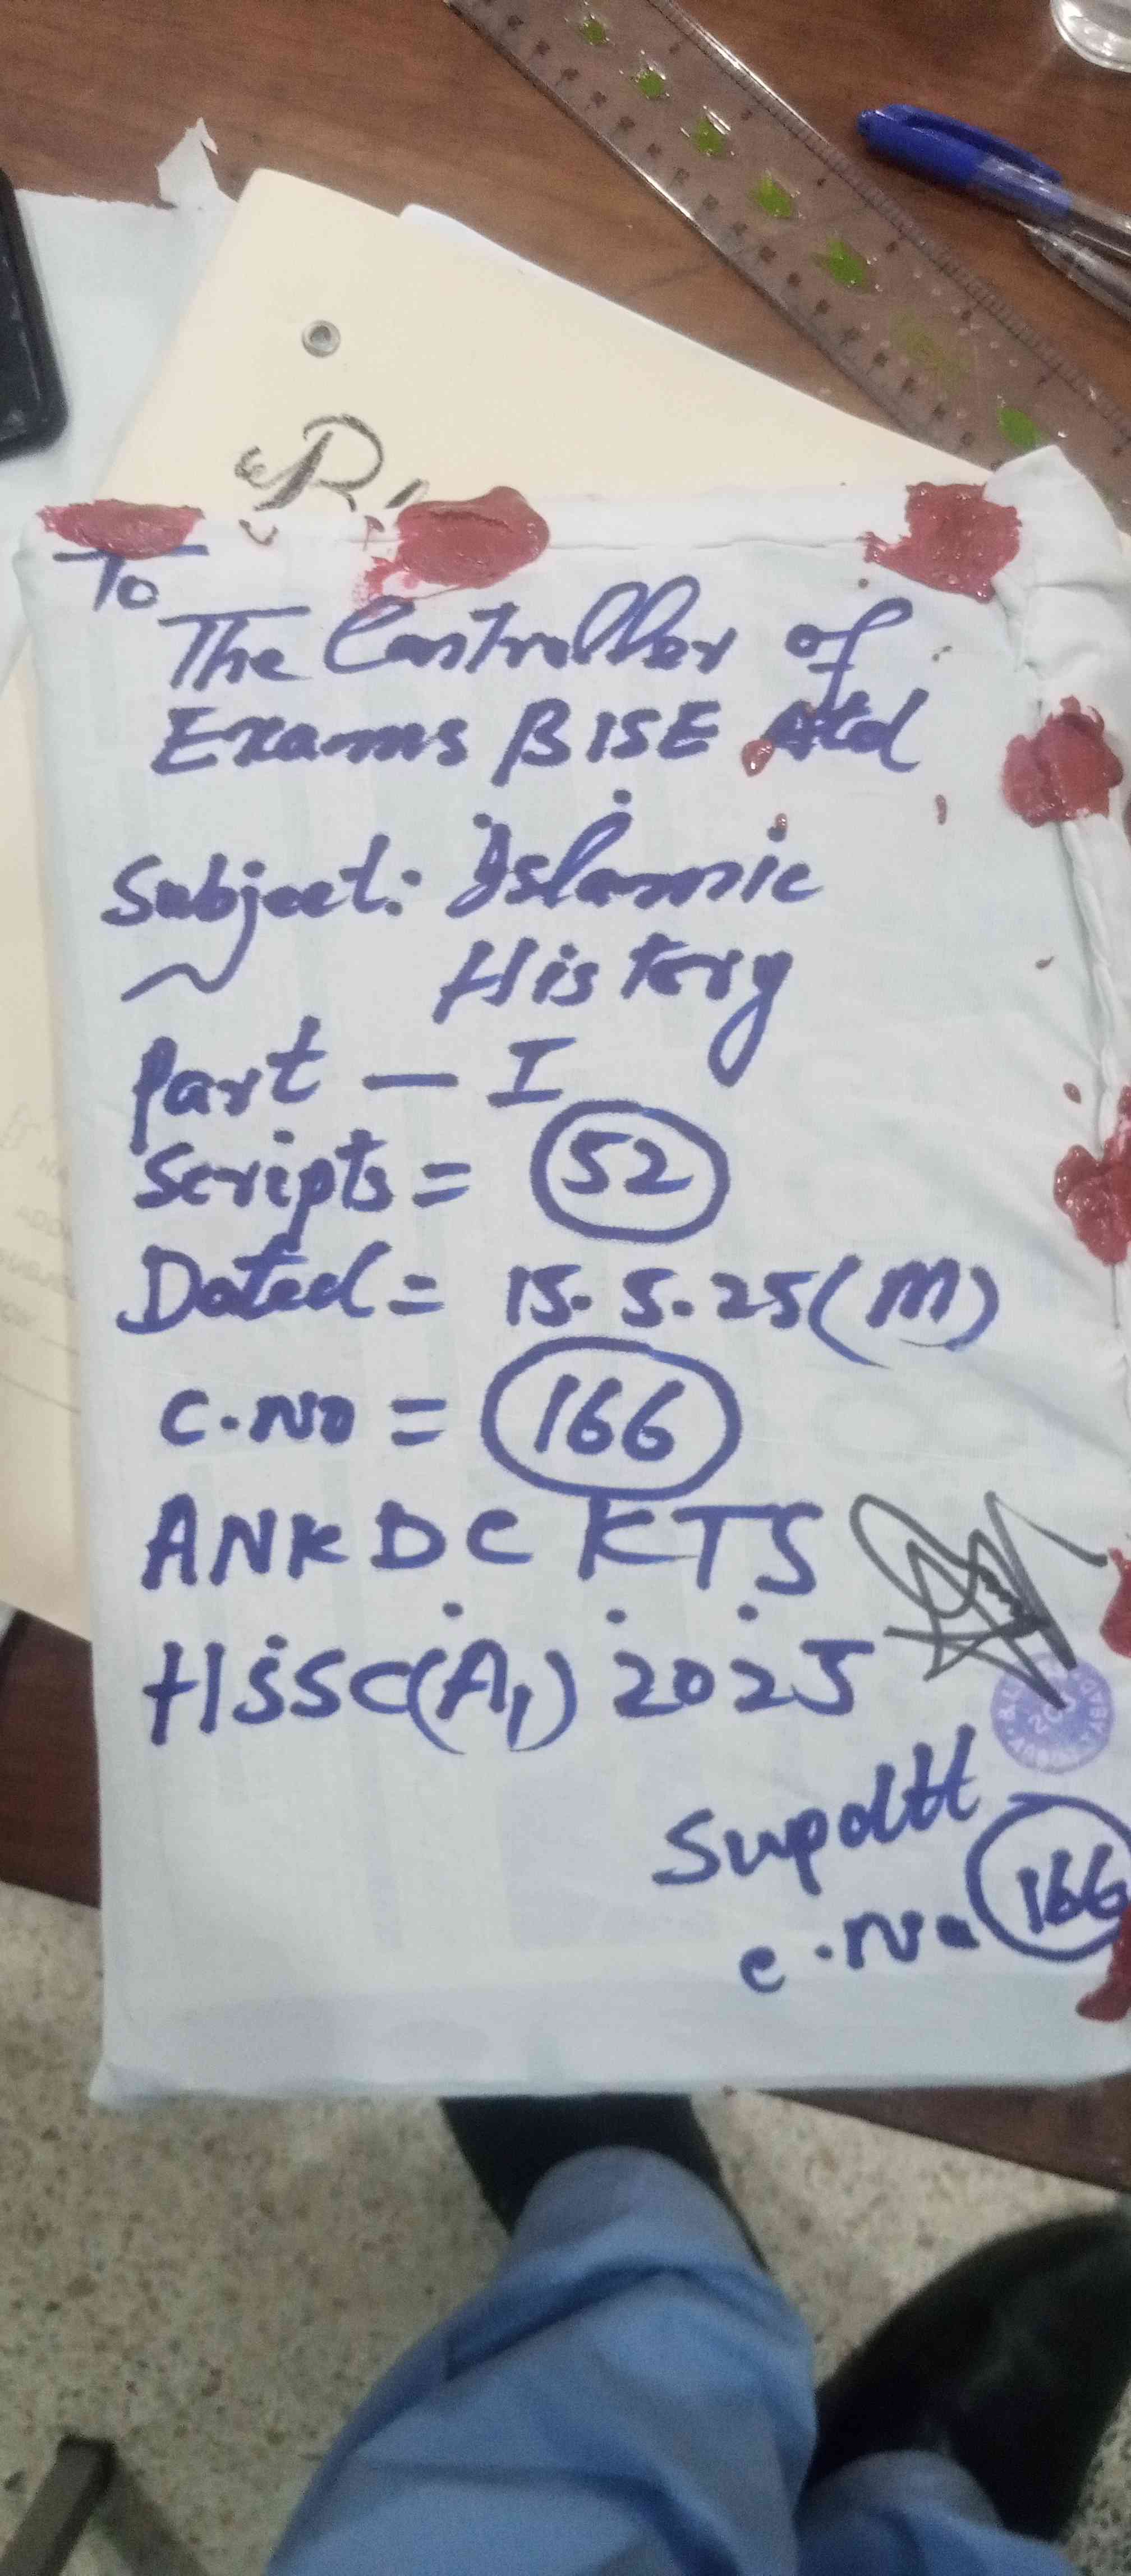 To
The Controller of
Exams BISE Atd
Subject: Islamic
History
Part — I
Scripts = 52
Dated = 15.5.25 (M)
C.No = 166
ANK DC KTS
HSSC(A,) 2025
Supdtt
C.No 166